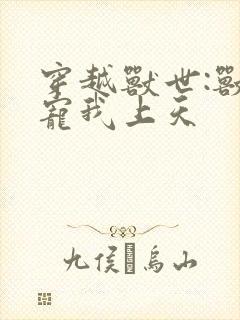 穿越獸世:獸
寵我上天
九侯烏山